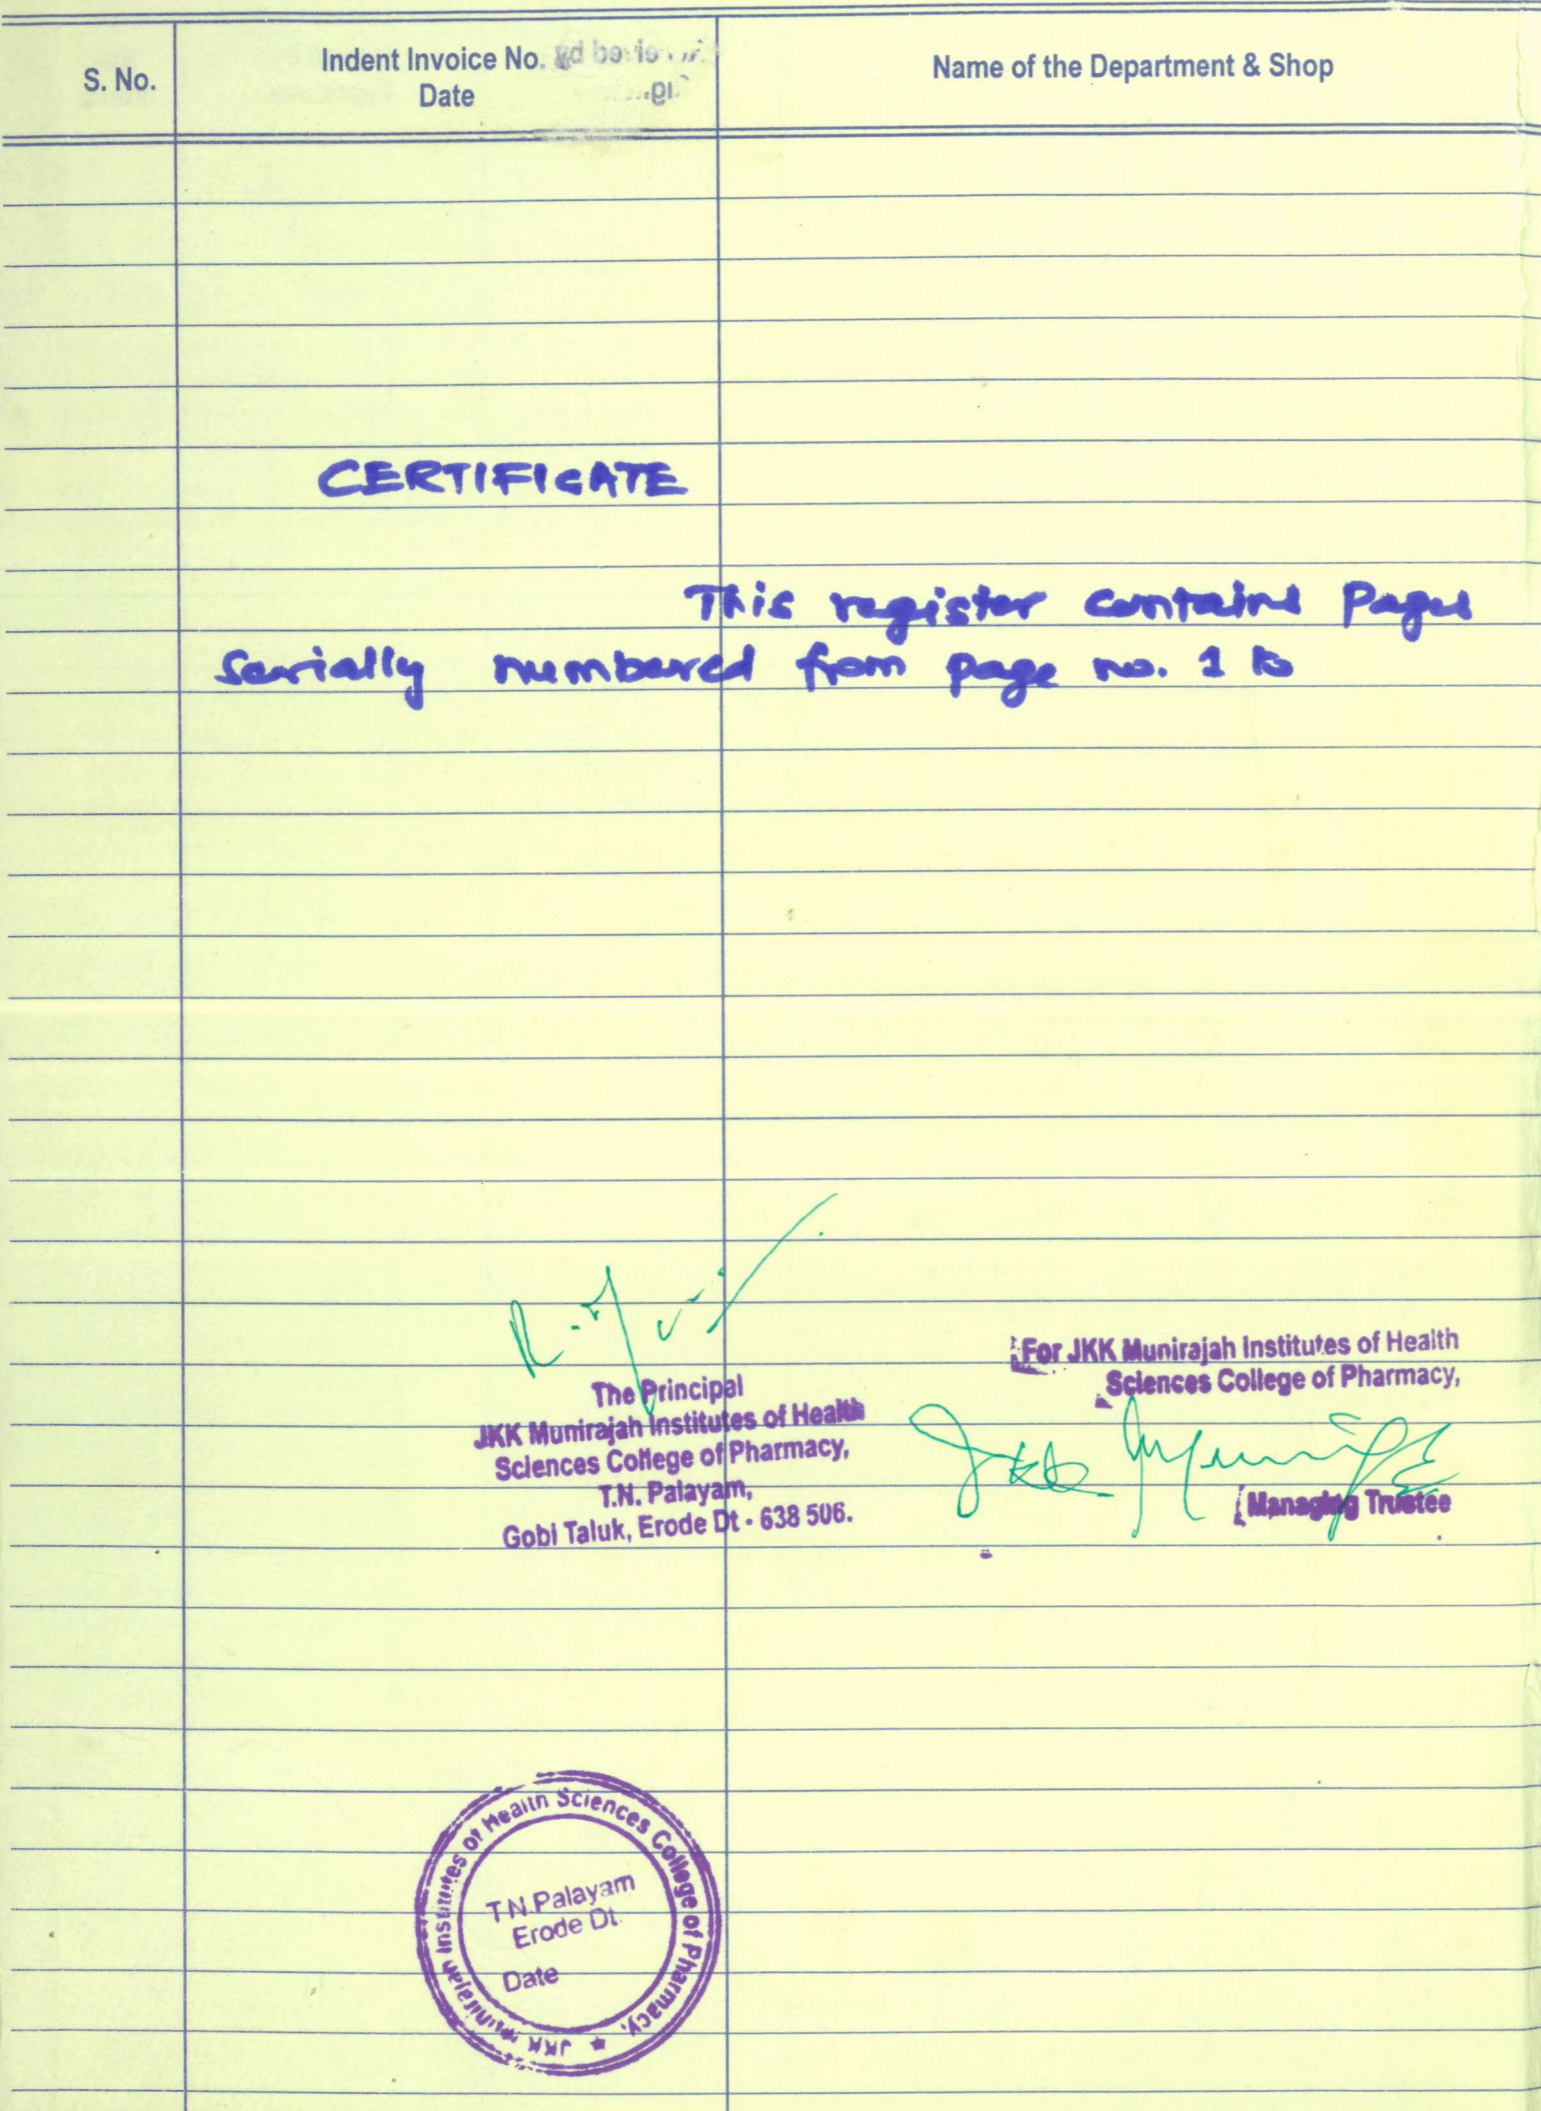 S. No.
Indent Invoice No.
Date
Name of the Department & Shop
CERTIFICATE
This register contains Pages
serially numbered from page no. 1 to
The Principal
JKK Munirajah Institutes of Health
Sciences College of Pharmacy,
T.N. Palayam,
Gobi Taluk, Erode Dt - 638 506.
For JKK Munirajah Institutes of Health
Sciences College of Pharmacy,
Managing Trustee
JKK Munirajah Institutes of Health Sciences College of Pharmacy,
T.N.Palayam
Erode Dt.
Date